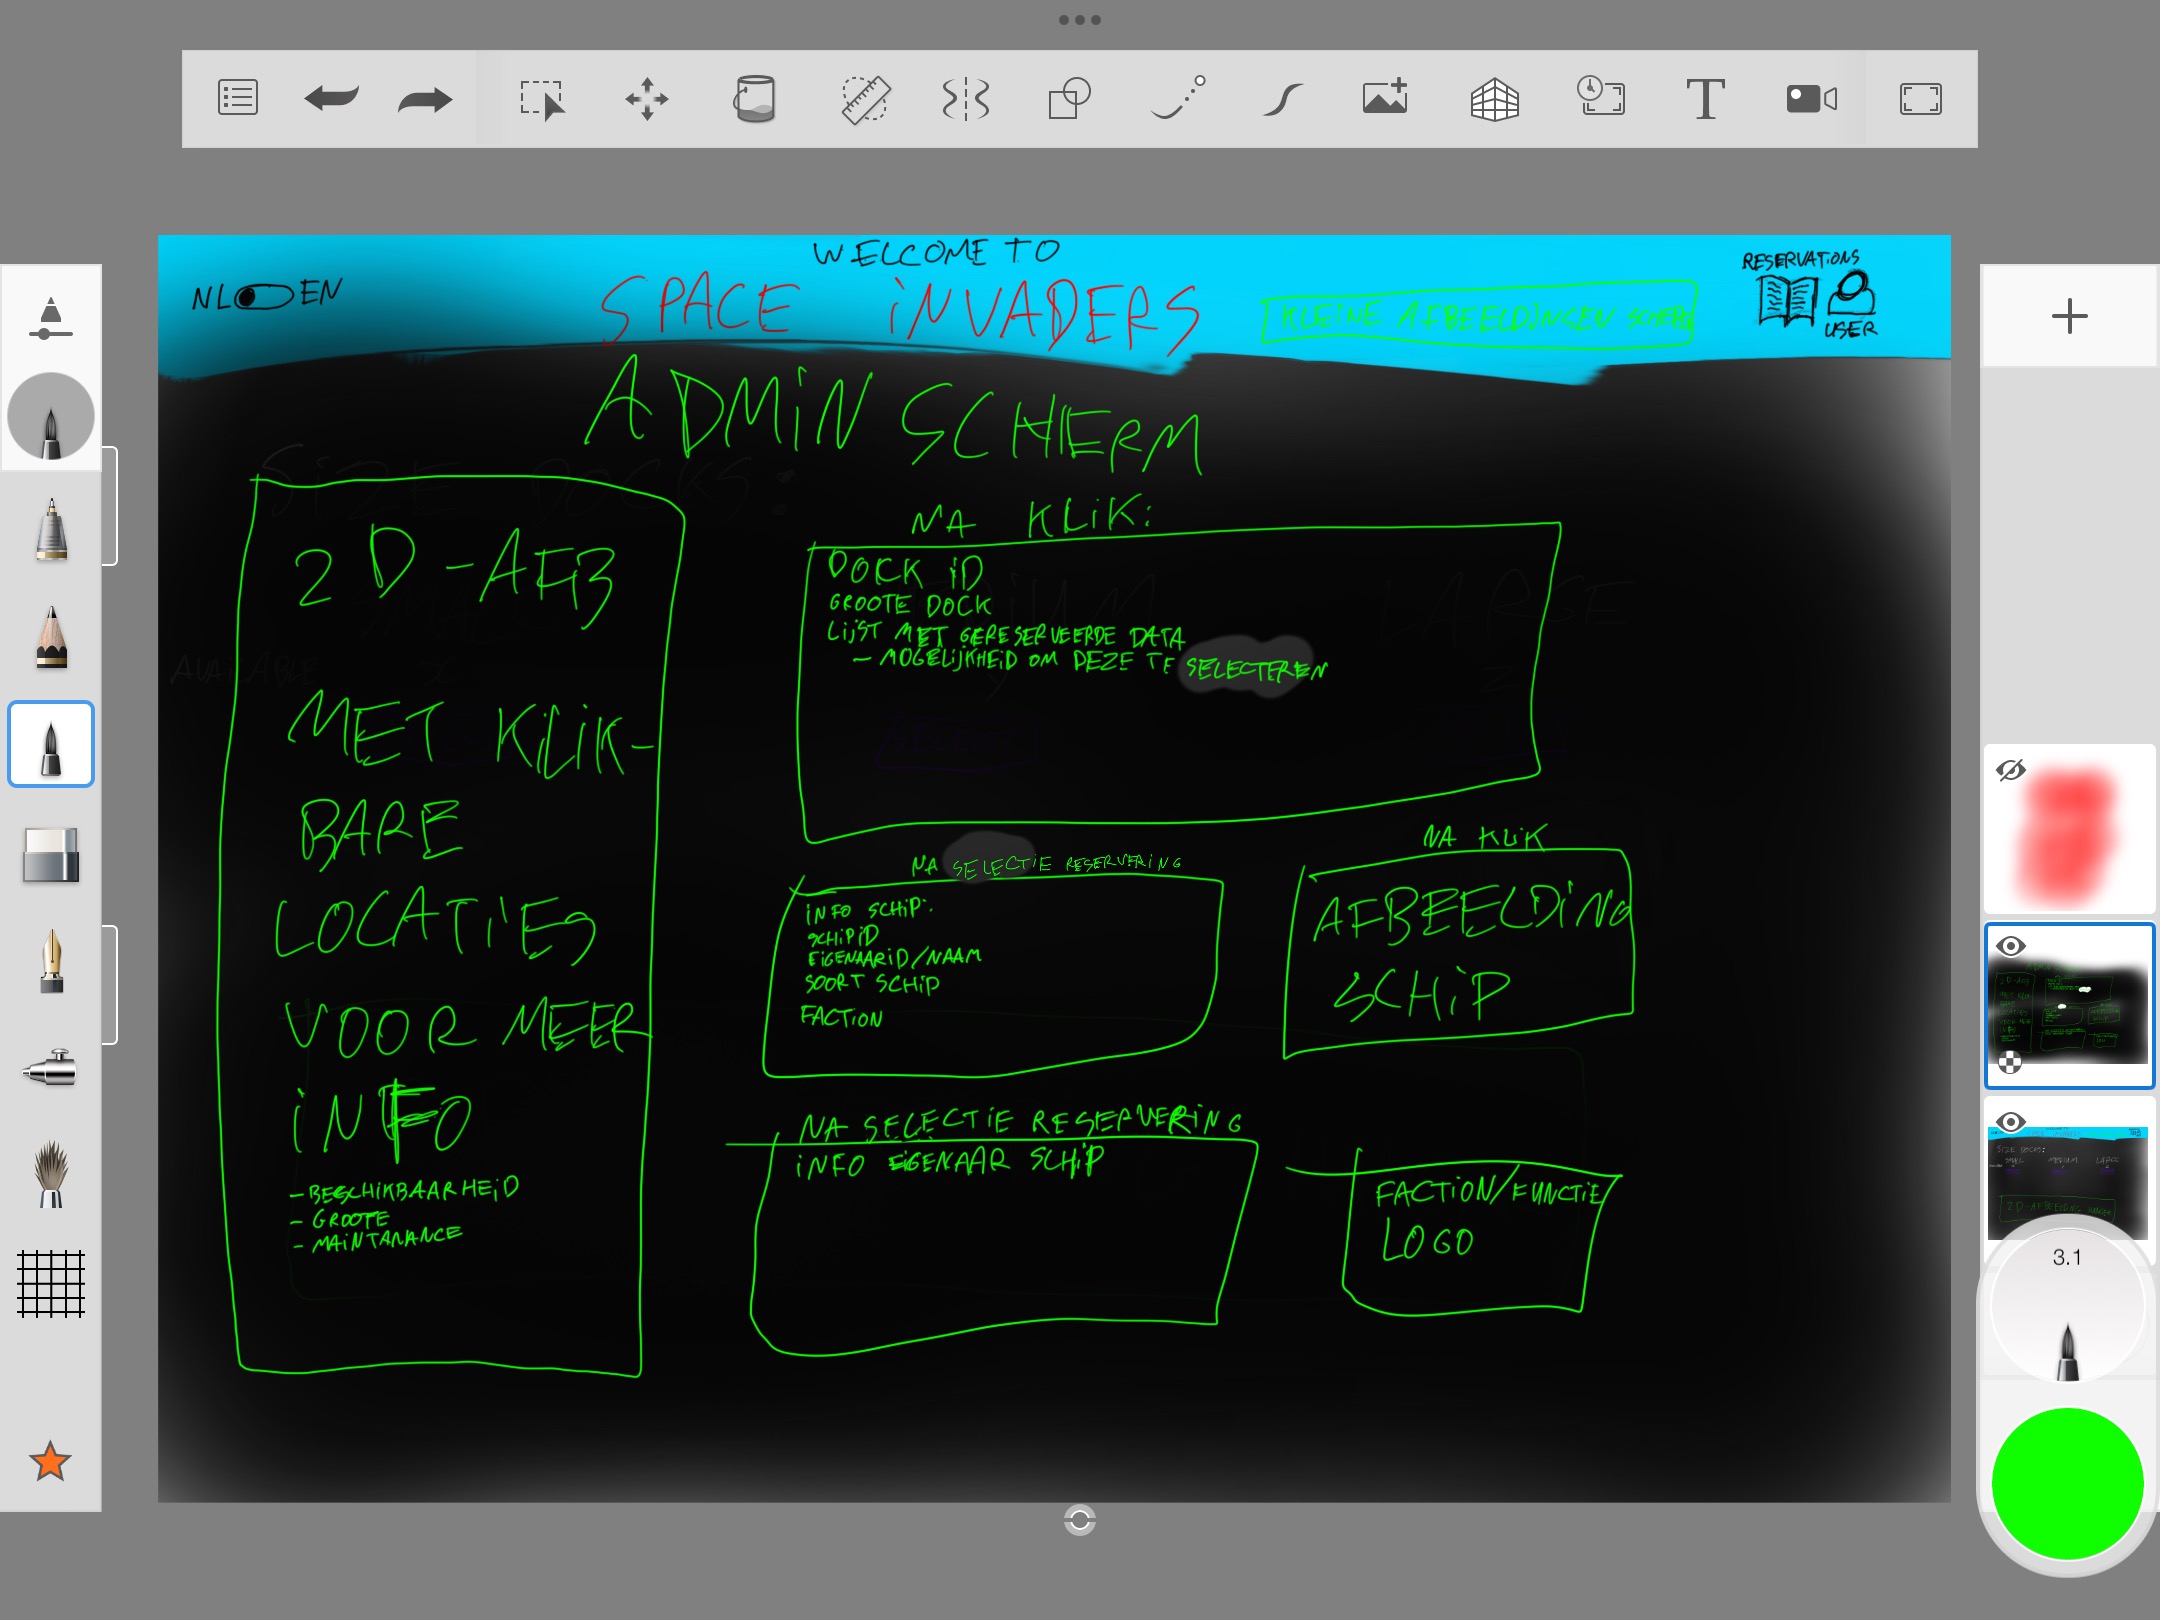 WELCOME TO
NL EN
SPACE INVADERS
KLEINE AFBEELDINGEN
RESERVATIONS
USER
ADMIN SCHERM
SIZE DOCKS:
2D-AFB
MET KLIK-
BARE
LOCATIES
VOOR MEER
INFO
- BESCHIKBAARHEID
- GROOTE
- MAINTANANCE
NA KLIK:
DOCK ID
GROOTE DOCK
LIJST MET GERESERVEERDE DATA
- MOGELIJKHEID OM DEZE TE SELECTEREN
LARGE
AVAILABLE
NA SELECTIE RESERVERING
INFO SCHIP:
SCHIPID
EIGENAARID/NAAM
SOORT SCHIP
FACTION
NA KLIK
AFBEELDING
SCHIP
NA SELECTIE RESERVERING
INFO EIGENAAR SCHIP
FACTION/FUNCTIE
LOGO
3.1